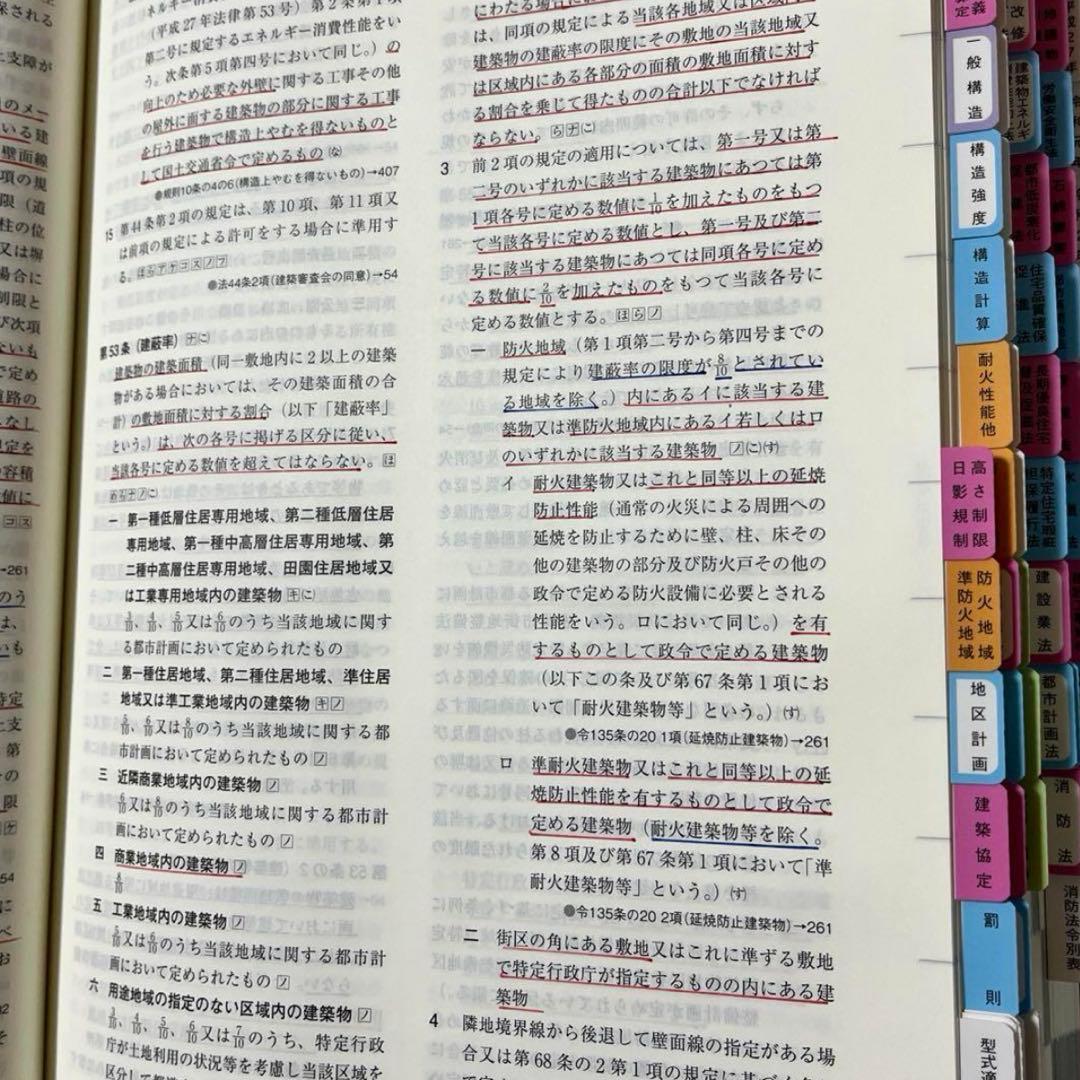 ネルギー消費性能
(平成27年法律第53号)第2条第1項
第二号に規定するエネルギー消費性能をい
う。次条第5項第四号において同じ。)の
向上のため必要な外壁に関する工事その他
の屋外に面する建築物の部分に関する工事
を行う建築物で構造上やむを得ないものと
して国土交通省令で定めるもの(な)
●規則10条の4の6(構造上やむを得ないもの)→407
15 第44条第2項の規定は、第10項、第11項又
は前項の規定による許可をする場合に準用す
る。ほらアヤコスノフ
●法44条2項(建築審査会の同意)→54
第53条(建蔽率)ナに
建築物の建築面積(同一敷地内に2以上の建築
物がある場合においては、その建築面積の合
計)の敷地面積に対する割合(以下「建蔽率」
という。)は、次の各号に掲げる区分に従い、
当該各号に定める数値を超えてはならない。ほ
めらナノに
一 第一種低層住居専用地域、第二種低層住居
専用地域、第一種中高層住居専用地域、第
二種中高層住居専用地域、田園住居地域又
は工業専用地域内の建築物キに
3/10、4/10、5/10又は6/10のうち当該地域に関す
る都市計画において定められたもの
二 第一種住居地域、第二種住居地域、準住居
地域又は準工業地域内の建築物キノ
5/10、6/10又は8/10のうち当該地域に関する都
市計画において定められたものノ
三 近隣商業地域内の建築物ノ
6/10又は8/10のうち当該地域に関する都市計
画において定められたものノ
四 商業地域内の建築物ノ
8/10
五 工業地域内の建築物ノ
5/10又は6/10のうち当該地域に関する都市計
画において定められたものノ
六 用途地域の指定のない区域内の建築物ノ
3/10、4/10、5/10、6/10又は7/10のうち、特定行政
庁が土地利用の状況等を考慮し当該区域を
区分して都道府
にわたる場合に
は、同項の規定による当該各地域又は区域内の
建築物の建蔽率の限度にその敷地の当該地域又
は区域内にある各部分の面積の敷地面積に対す
る割合を乗じて得たものの合計以下でなければ
ならない。らナに
3 前2項の規定の適用については、第一号又は第
二号のいずれかに該当する建築物にあつては第
1項各号に定める数値に1/10を加えたものをもつ
て当該各号に定める数値とし、第一号及び第二
号に該当する建築物にあつては同項各号に定め
る数値に2/10を加えたものをもつて当該各号に
定める数値とする。ほらノ
一 防火地域(第1項第二号から第四号までの
規定により建蔽率の限度が8/10とされてい
る地域を除く。)内にあるイに該当する建
築物又は準防火地域内にあるイ若しくはロ
のいずれかに該当する建築物ノ(に)(す)
イ 耐火建築物又はこれと同等以上の延焼
防止性能(通常の火災による周囲への
延焼を防止するために壁、柱、床その
他の建築物の部分及び防火戸その他の
政令で定める防火設備に必要とされる
性能をいう。ロにおいて同じ。)を有
するものとして政令で定める建築物
(以下この条及び第67条第1項にお
いて「耐火建築物等」という。)(す)
●令135条の20 1項(延焼防止建築物)→261
ロ 準耐火建築物又はこれと同等以上の延
焼防止性能を有するものとして政令で
定める建築物(耐火建築物等を除く。
第8項及び第67条第1項において「準
耐火建築物等」という。)(す)
●令135条の20 2項(延焼防止建築物)→261
二 街区の角にある敷地又はこれに準ずる敷地
で特定行政庁が指定するものの内にある建
築物
4 隣地境界線から後退して壁面線の指定がある場
合又は第68条の2第1項の規定に基づく
一般構造
構造強度
構造計算
耐火性能他
高さ制限
日影規制
防火地域
準防火地域
地区計画
建築協定
罰則
型式適
建設業法
都市計画法
消防法
消防法令別表